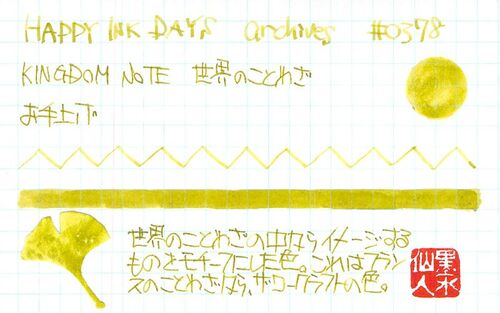 HAPPY INK DAYS archives #0378
KINGDOM NOTE 世界のことわざ
お手上げ
世界のことわざの中からイメージする
ものをモチーフにした色。これはフラン
スのことわざから、ザワークラフトの色。
墨水
仙人